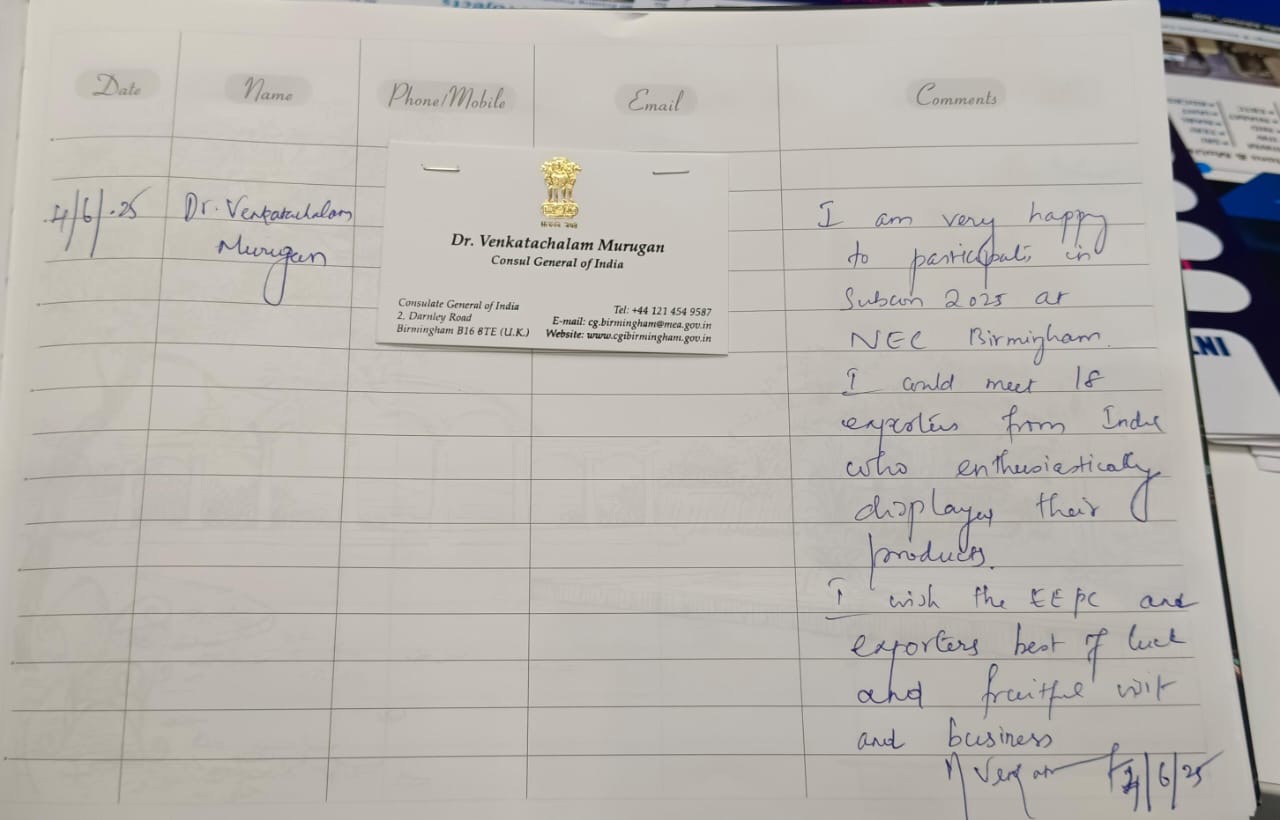 Date
Name
Phone/Mobile
Email
Comments
4/6/25
Dr. Venkatachalam
Murugan
Dr. Venkatachalam Murugan
Consul General of India
Consulate General of India
2, Darnley Road
Birmingham B16 8TE (U.K.)
Tel: +44 121 454 9587
E-mail: cg.birmingham@mea.gov.in
Website: www.cgibirmingham.gov.in
I am very happy
to participate in
Subcon 2025 at
NEC Birmingham.
I could meet 18
exporters from India
who enthusiastically
displayed their
products.
I wish the EEPC and
exporters best of luck
and fruitful visit
and business
4/6/25